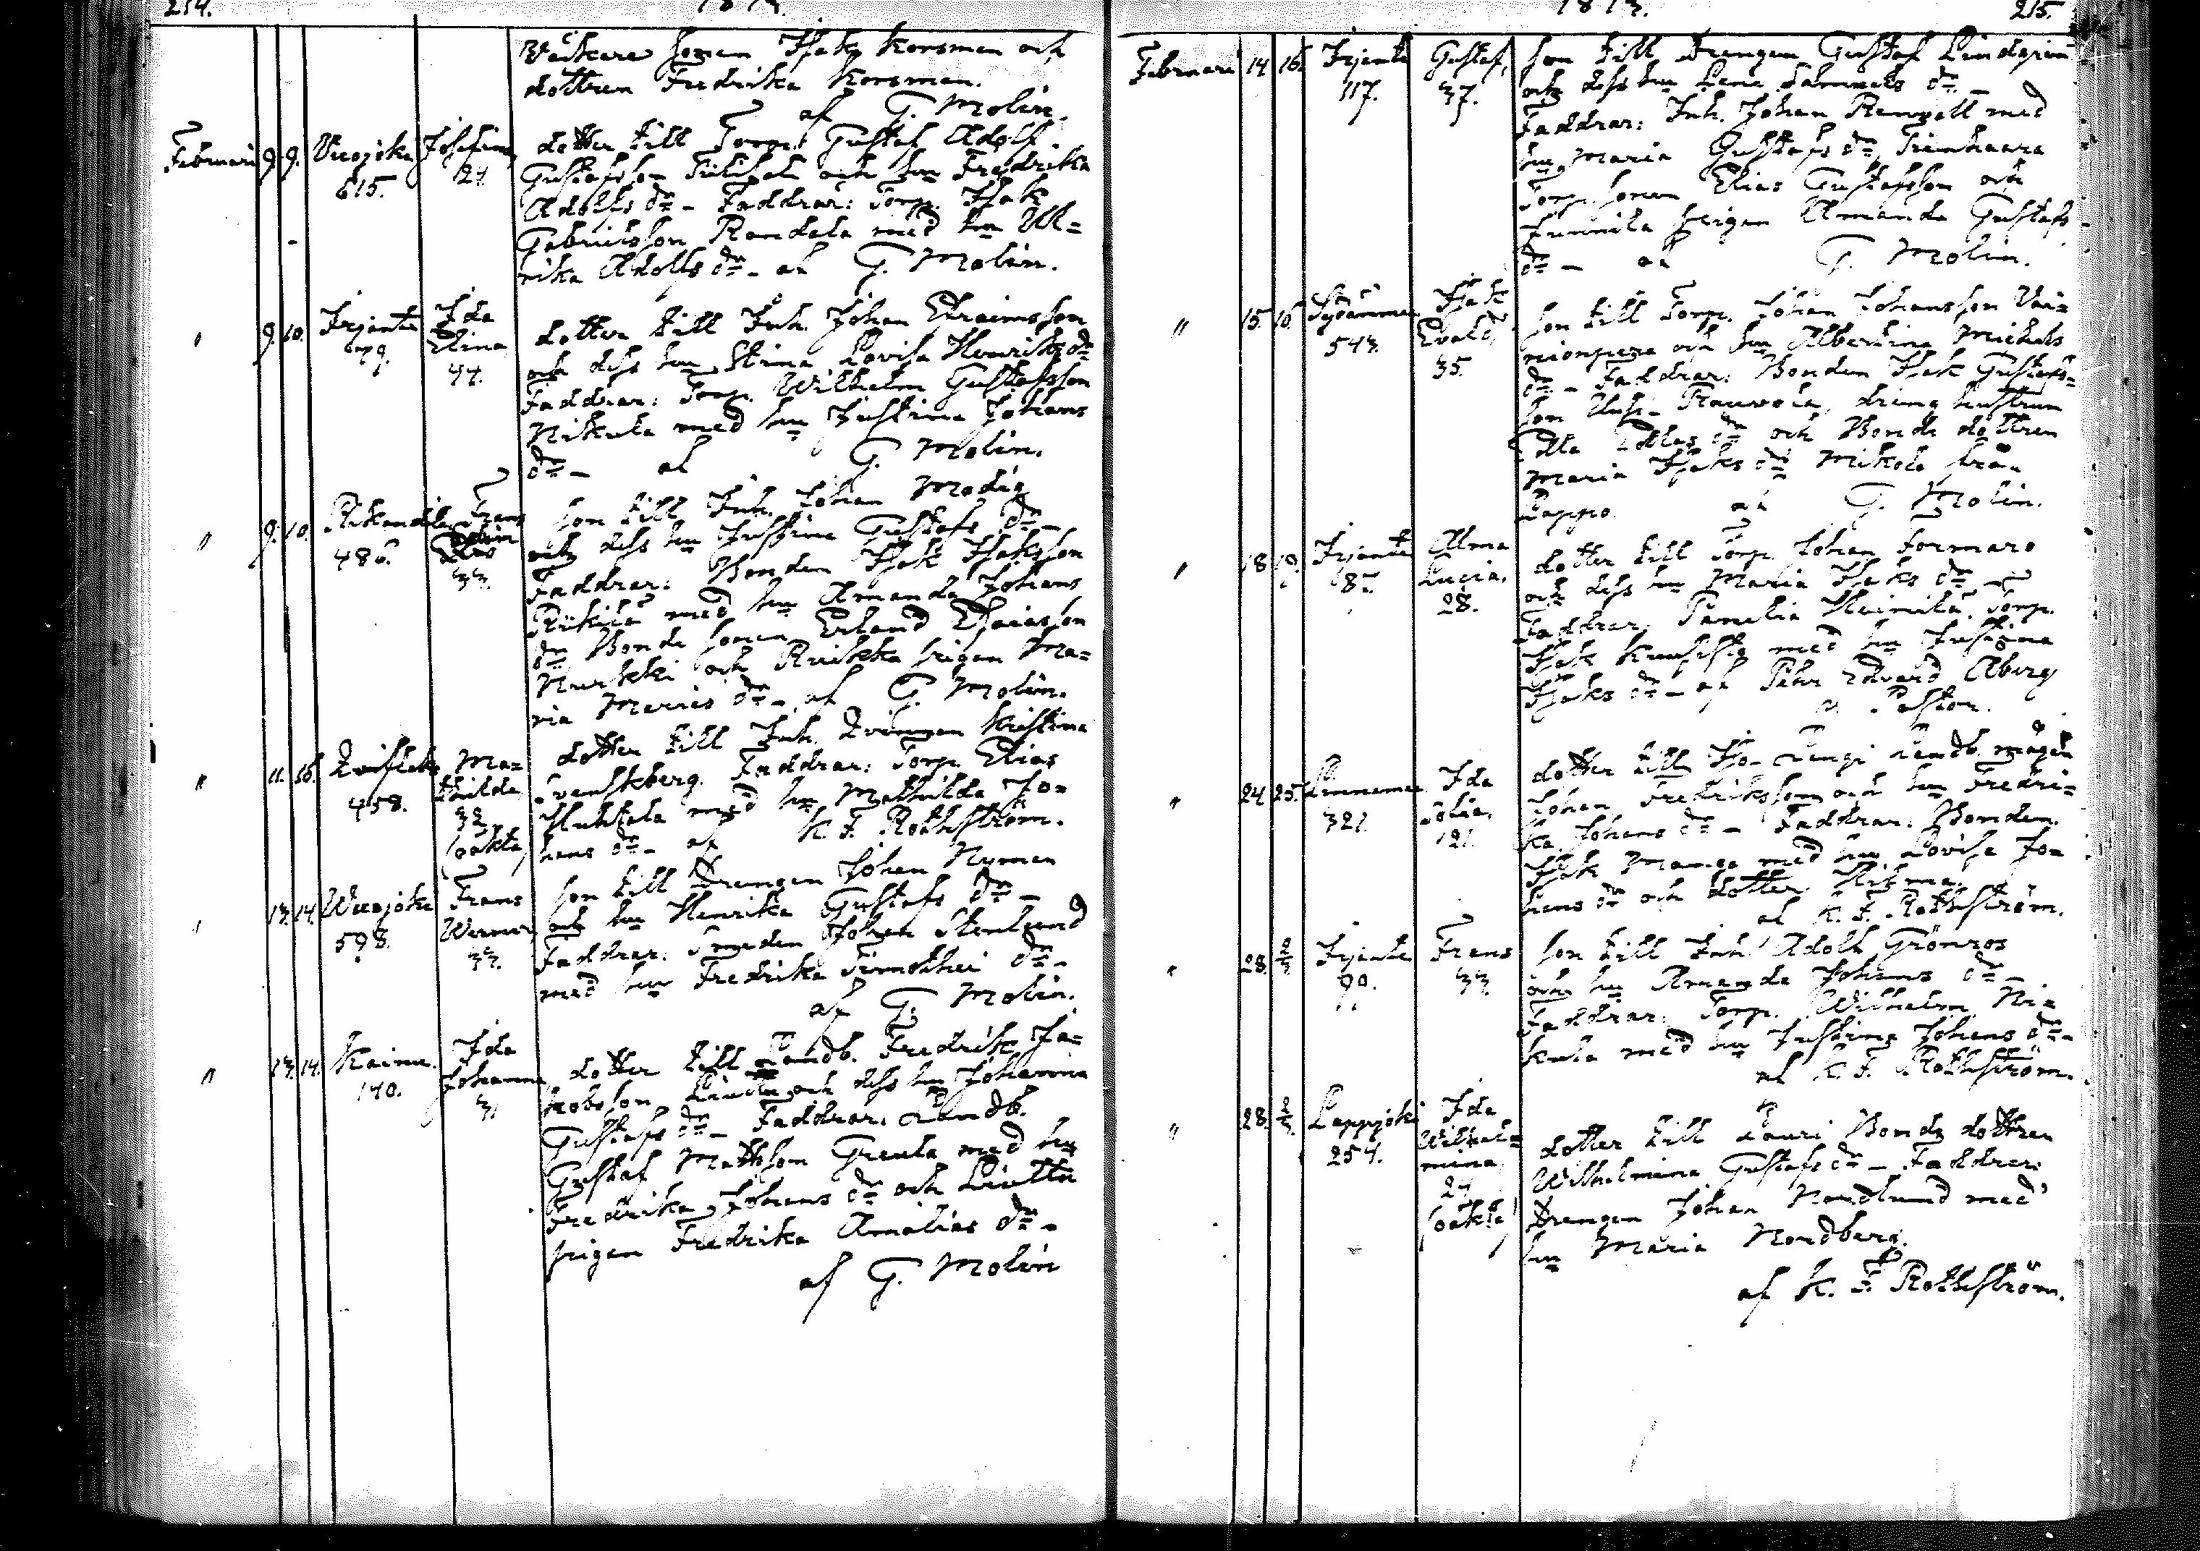 214.
1873.
sonen Isak Korsman och
dottren Fredrika Korsman.
af G. Molin.
Februari 9. 9. Wuojoki Josefina,
615. 24.
dotter till Torp. Gustaf Adolf
Gustafsson och hu Fredrika
Adolfs dr – Faddrar: Torp. Isak
Gabrielsson Randala med hu Ul=
rika Adolfs dr – af G. Molin.
" 9. 10. Irjante Ida
Elina
44.
dotter till Inh. Johan Efraimsson
och dess hu Stina Lovisa Henriks dr
Faddrar: Torp. Wilhelm Gustafsson
Nikula med hu Justina Johans
dr – af G. Molin.
" 9. 10. Frans
486.
33.
son till Inh. Johan Modig
och dess hu Justina Gustafs dr –
Faddrar: Bonden Isak Isaksson
med hu Amanda Johans
dr Bonde sonen Erland Esaiasson
Nurkki och pigan Ma=
ria dr – af G. Molin.
" 11. 16. Ma=
458. thilda
33.
(oäkta)
dotter till Inh. Kristina
Svenskberg. Faddrar: Torp. Elias
Huhtala med hu Mathilda Jo=
hans dr – af K. F. Rothström.
" 13. 14. Wuojoki Frans
598. Werner,
33.
son till Drengen Johan Nyman
och hu Henrika Gustafs dr –
Faddrar: Smeden Johan Stenlund
med hu Fredrika Timothei dr –
af G. Molin.
" 13. 14. Kainu Ida
140. Johanna
31
dotter till Landb. Fredrik Ja=
kobsson och dess hu Johanna
Gustafs dr – Faddrar: Landb.
Gustaf Mathsson Greula med hu
Fredrika Johans dr och
pigan Fredrika Amalias dr –
af G. Molin
1873.
215.
Februari 14 16. Irjante Gustaf,
117. 37.
son till Drengen Gustaf Lindgren
och dess hu Lena Samuels dr –
Faddrar: Inh. Johan Renvall med
hu Maria Gustafs dr
Torp. sonen Elias Gustafsson och
pigan Amanda Gustafs
dr – af G. Molin.
" 15. 16. Isak
543. Evald,
35.
son till Torp. Johan Johansson Vai=
och hu Albertina Michels
dr – Faddrar: Bonden Isak Gustafs=
son hustrun
dr och Bonde dottren
Maria Isaks dr Mikola från
Lappo. af G. Molin.
" 18. 19. Irjante Alma
Lucia,
28.
dotter till Torp. Johan Formaro
och dess hu Maria Isaks dr –
Faddrar: Torp.
Isak med hu Justina
Isaks dr – af Pehr Edvard Åberg
v. Pastor.
" 24 25. Ida
321.
121.
dotter till Landb. mågen
Johan Fredriksson och hu Fredri=
ka Johans dr – Faddrar: Bonden
Isak med hu Lovisa Jo=
hans dr och dotter
af K. F. Rothström.
" 28. 2/3 Irjante Frans
90. 33.
son till Inh. Adolf Grönroos
och hu Amanda Johans dr –
Faddrar: Torp. Wilhelm Ni=
kula med hu Justina Johans dr –
af K. F. Rothström.
" 28. 2/3 Lappjoki Ida
254. Wilhel=
mina
24
(oäkta)
dotter till Lauri Bonde dottren
Wilhelmina Gustafs dr – Faddrar:
Drengen Johan Nordlund med
hu Maria Nordberg.
af K. F. Rothström.